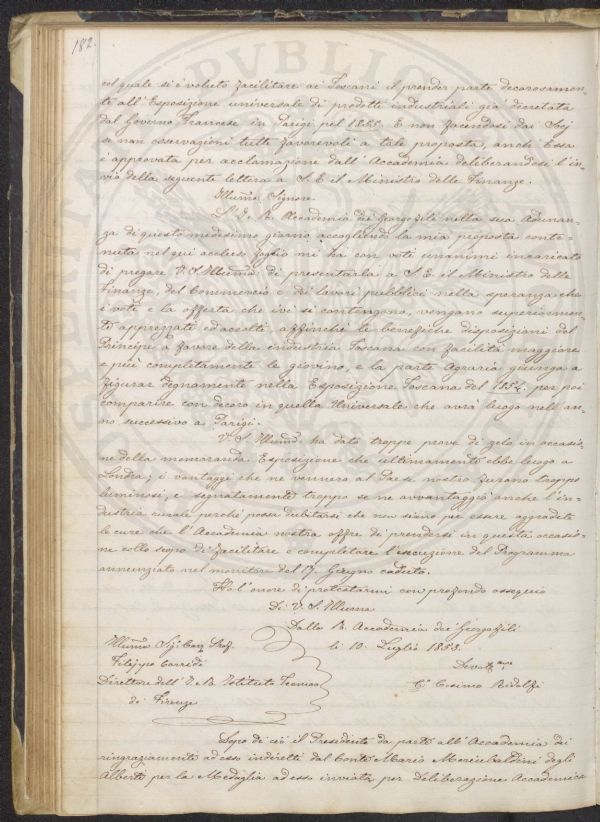 182.
col quale si è voluto facilitare ai Toscani il prender parte decorosamen=
te all'Esposizione universale di prodotti industriali già decretata
dal Governo Francese in Parigi pel 1855. E non facendosi dai Socj
se non osservazioni tutte favorevoli a tale proposta, anch'Essa
è approvata per acclamazione dall'Accademia deliberandosi l'in=
vio della seguente lettera a S. E. il Ministro delle Finanze.
Illumo Signore
L'I. R. Accademia dei Georgofili nella sua Adunan=
za di questo medesimo giorno accogliendo la mia proposta conte=
nuta nel qui accluso foglio mi ha con voti unanimi incaricato
di pregare V. S. Illuma di presentarla a S. E. il Ministro delle
Finanze, del Commercio e dei lavori pubblici nella speranza che
i voti e la offerta che ivi si contengono, vengano superiormen=
te apprezzati ed accolti affinchè le benefiche disposizioni del
Principe a favore della industria Toscana con facilità maggiore
e più completamente le giovino, e la parte Agraria giunga a
figurar degnamente nella Esposizione Toscana del 1854. per poi
comparire con decoro in quella Universale che avrà luogo nell'an=
no successivo a Parigi.
V. S. Illuma ha dato troppe prove di zelo in occasio=
ne della memoranda Esposizione che ultimamente ebbe luogo a
Londra; i vantaggi che ne vennero al Paese nostro furono troppo
luminosi, e segnatamente troppo se ne avvantaggiò anche l'in=
dustria rurale perchè possa dubitarsi che non siano per essere aggradite
le cure che l'Accademia nostra offre di prendersi in questa occasio=
ne collo scopo di facilitare e completare l'esecuzione del Programma
annunziato nel monitore del 17. Giugno caduto.
Ho l'onore di protestarmi con profondo ossequio
Di V. S. Illuma
Dalla R. Accademia dei Georgofili
li 10. Luglio 1853.
Illumo Sig. Cav. Prof.
Filippo Corridi
Direttore dell'I. e R. Istituto Tecnico
di Firenze
Cosimo Ridolfi
Dopo di ciò il Presidente dà parte all'Accademia dei
ringraziamenti ad essa indiretti dal Conte Mario degli
Alberti per la Medaglia ad esso inviata per Deliberazione Accademica